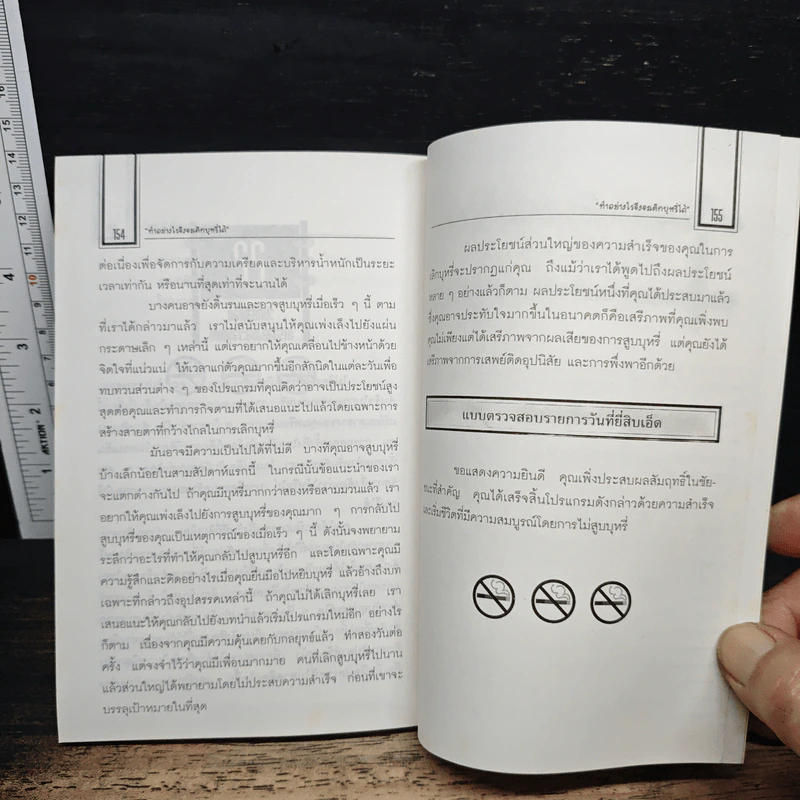 154
"ทำอย่างไรจึงจะเลิกบุหรี่ได้"
ต่อเนื่องเพื่อจัดการกับความเครียดและบริหารน้ำหนักเป็นระยะ
เวลาเท่ากัน หรือนานที่สุดเท่าที่จะนานได้
บางคนอาจยังดิ้นรนและอาจสูบบุหรี่เมื่อเร็ว ๆ นี้ ตาม
ที่เราได้กล่าวมาแล้ว เราไม่สนับสนุนให้คุณเพ่งเล็งไปยังแผ่น
กระดาษเล็ก ๆ เหล่านี้ แต่เราอยากให้คุณเคลื่อนไปข้างหน้าด้วย
จิตใจที่แน่วแน่ ให้เวลาแก่ตัวคุณมากขึ้นอีกสักนิดในแต่ละวันเพื่อ
ทบทวนส่วนต่าง ๆ ของโปรแกรมที่คุณคิดว่าอาจเป็นประโยชน์สูง
สุดต่อคุณและทำภารกิจตามที่ได้เสนอแนะไปแล้วโดยเฉพาะการ
สร้างสายตาที่กว้างไกลในการเลิกบุหรี่
มันอาจมีความเป็นไปได้ที่ไม่ดี บางทีคุณอาจสูบบุหรี่
บ้างเล็กน้อยในสามสัปดาห์แรกนี้ ในกรณีนั้นข้อแนะนำของเรา
จะแตกต่างกันไป ถ้าคุณมีบุหรี่มากกว่าสองหรือสามมวนแล้ว เรา
อยากให้คุณเพ่งเล็งไปยังการสูบบุหรี่ของคุณมาก ๆ การกลับไป
สูบบุหรี่ของคุณเป็นเหตุการณ์ของเมื่อเร็ว ๆ นี้ ดังนั้นจงพยายาม
ระลึกว่าอะไรที่ทำให้คุณกลับไปสูบบุหรี่อีก และโดยเฉพาะคุณมี
ความรู้สึกและคิดอย่างไรเมื่อคุณยื่นมือไปหยิบบุหรี่ แล้วอ้างถึงบท
เฉพาะที่กล่าวถึงอุปสรรคเหล่านี้ ถ้าคุณไม่ได้เลิกบุหรี่เลย เรา
เสนอแนะให้คุณกลับไปยังบทนำแล้วเริ่มโปรแกรมใหม่อีก อย่างไร
ก็ตาม เนื่องจากคุณมีความคุ้นเคยกับกลยุทธ์แล้ว ทำสองวันต่อ
ครั้ง แต่จงจำไว้ว่าคุณมีเพื่อนมากมาย คนที่เลิกสูบบุหรี่ไปนาน
แล้วส่วนใหญ่ได้พยายามโดยไม่ประสบความสำเร็จ ก่อนที่เขาจะ
บรรลุเป้าหมายในที่สุด
"ทำอย่างไรจึงจะเลิกบุหรี่ได้"
155
ผลประโยชน์ส่วนใหญ่ของความสำเร็จของคุณในการ
เลิกบุหรี่จะปรากฏแก่คุณ ถึงแม้ว่าเราได้พูดไปถึงผลประโยชน์
หลาย ๆ อย่างแล้วก็ตาม ผลประโยชน์หนึ่งที่คุณได้ประสบมาแล้ว
ซึ่งคุณอาจประทับใจมากขึ้นในอนาคตก็คือเสรีภาพที่คุณเพิ่งพบ
คุณไม่เพียงแต่ได้เสรีภาพจากผลเสียของการสูบบุหรี่ แต่คุณยังได้
เสรีภาพจากการเสพย์ติดอุปนิสัย และการพึ่งพาอีกด้วย
แบบตรวจสอบรายการวันที่ยี่สิบเอ็ด
ขอแสดงความยินดี คุณเพิ่งประสบผลสัมฤทธิ์ในชัย-
ชนะที่สำคัญ คุณได้เสร็จสิ้นโปรแกรมดังกล่าวด้วยความสำเร็จ
และเริ่มชีวิตที่มีความสมบูรณ์โดยการไม่สูบบุหรี่
16
15
14
13
4
3
2
1
AKTION